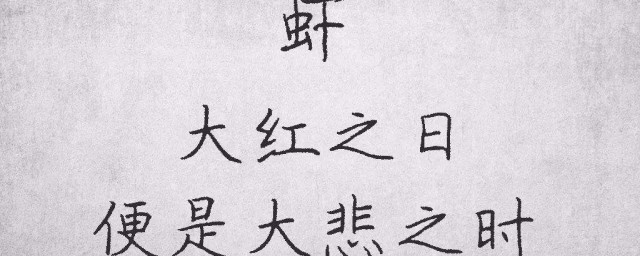 虾
大红之日
便是大悲之时